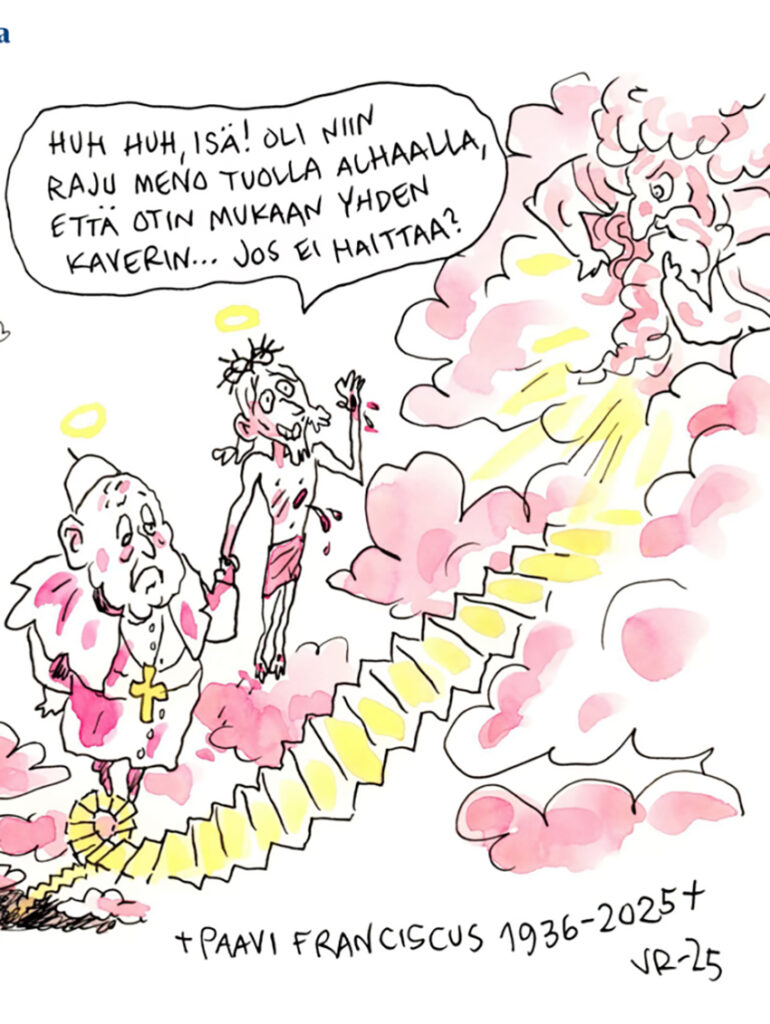 a
HUH HUH, ISÄ! OLI NIIN
RAJU MENO TUOLLA ALHAALLA,
ETTÄ OTIN MUKAAN YHDEN
KAVERIN... JOS EI HAITTAA?
+PAAVI FRANCISCUS 1936-2025+
VR-25